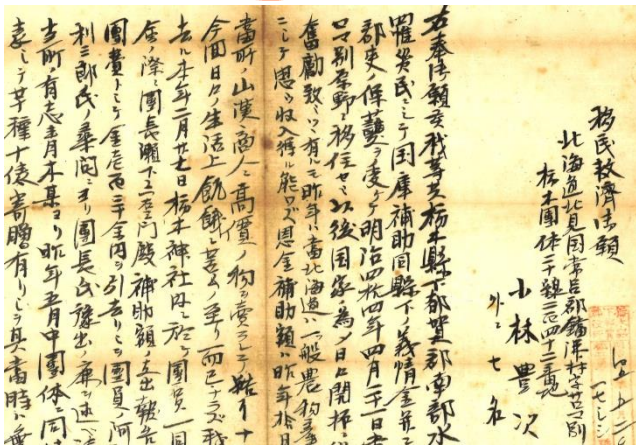 移民救済御願
北海道北見国常呂郡鐺沸村字サロマ別
栃木團体二十線三百四十二番地
小林豊次
外ニ七名
右奉御願候我等共栃木縣下都賀郡南部水
罹災民ニシテ国庫補助同縣下ノ義捐金並ニ
郡吏ノ保護ヲ受ケ明治四拾四年四月二十一日
ロマ別原野ニ移住セシ以後国家ノ為メ日々開拓
奮励致シツヽ有ルモ昨年ハ當北海道ハ一般農物
ニシテ思ウ収入得ル能ワズ恩金補助額ハ昨年拾月
當所ノ山漢商人ニ高價ノ物ヲ賣ラレ
今回日々ノ生活上飢餓ニ苦ム至リ而已ナラズ我
去ル本年二月廿七日栃木神社内ニ於テ團員一同
會ノ際ニ團長瀬下六右エ門殿補助額ノ支出報告
團費トシテ金壱百三十余円ヲ引去リシヲ團員ノ阿
利三郎氏ノ尋問ニヨリ團長氏
當所ノ有志青木某ヨリ昨年五月中團体ニ同情
表シテ芋種十俵寄贈有リシヲ其當時ハ